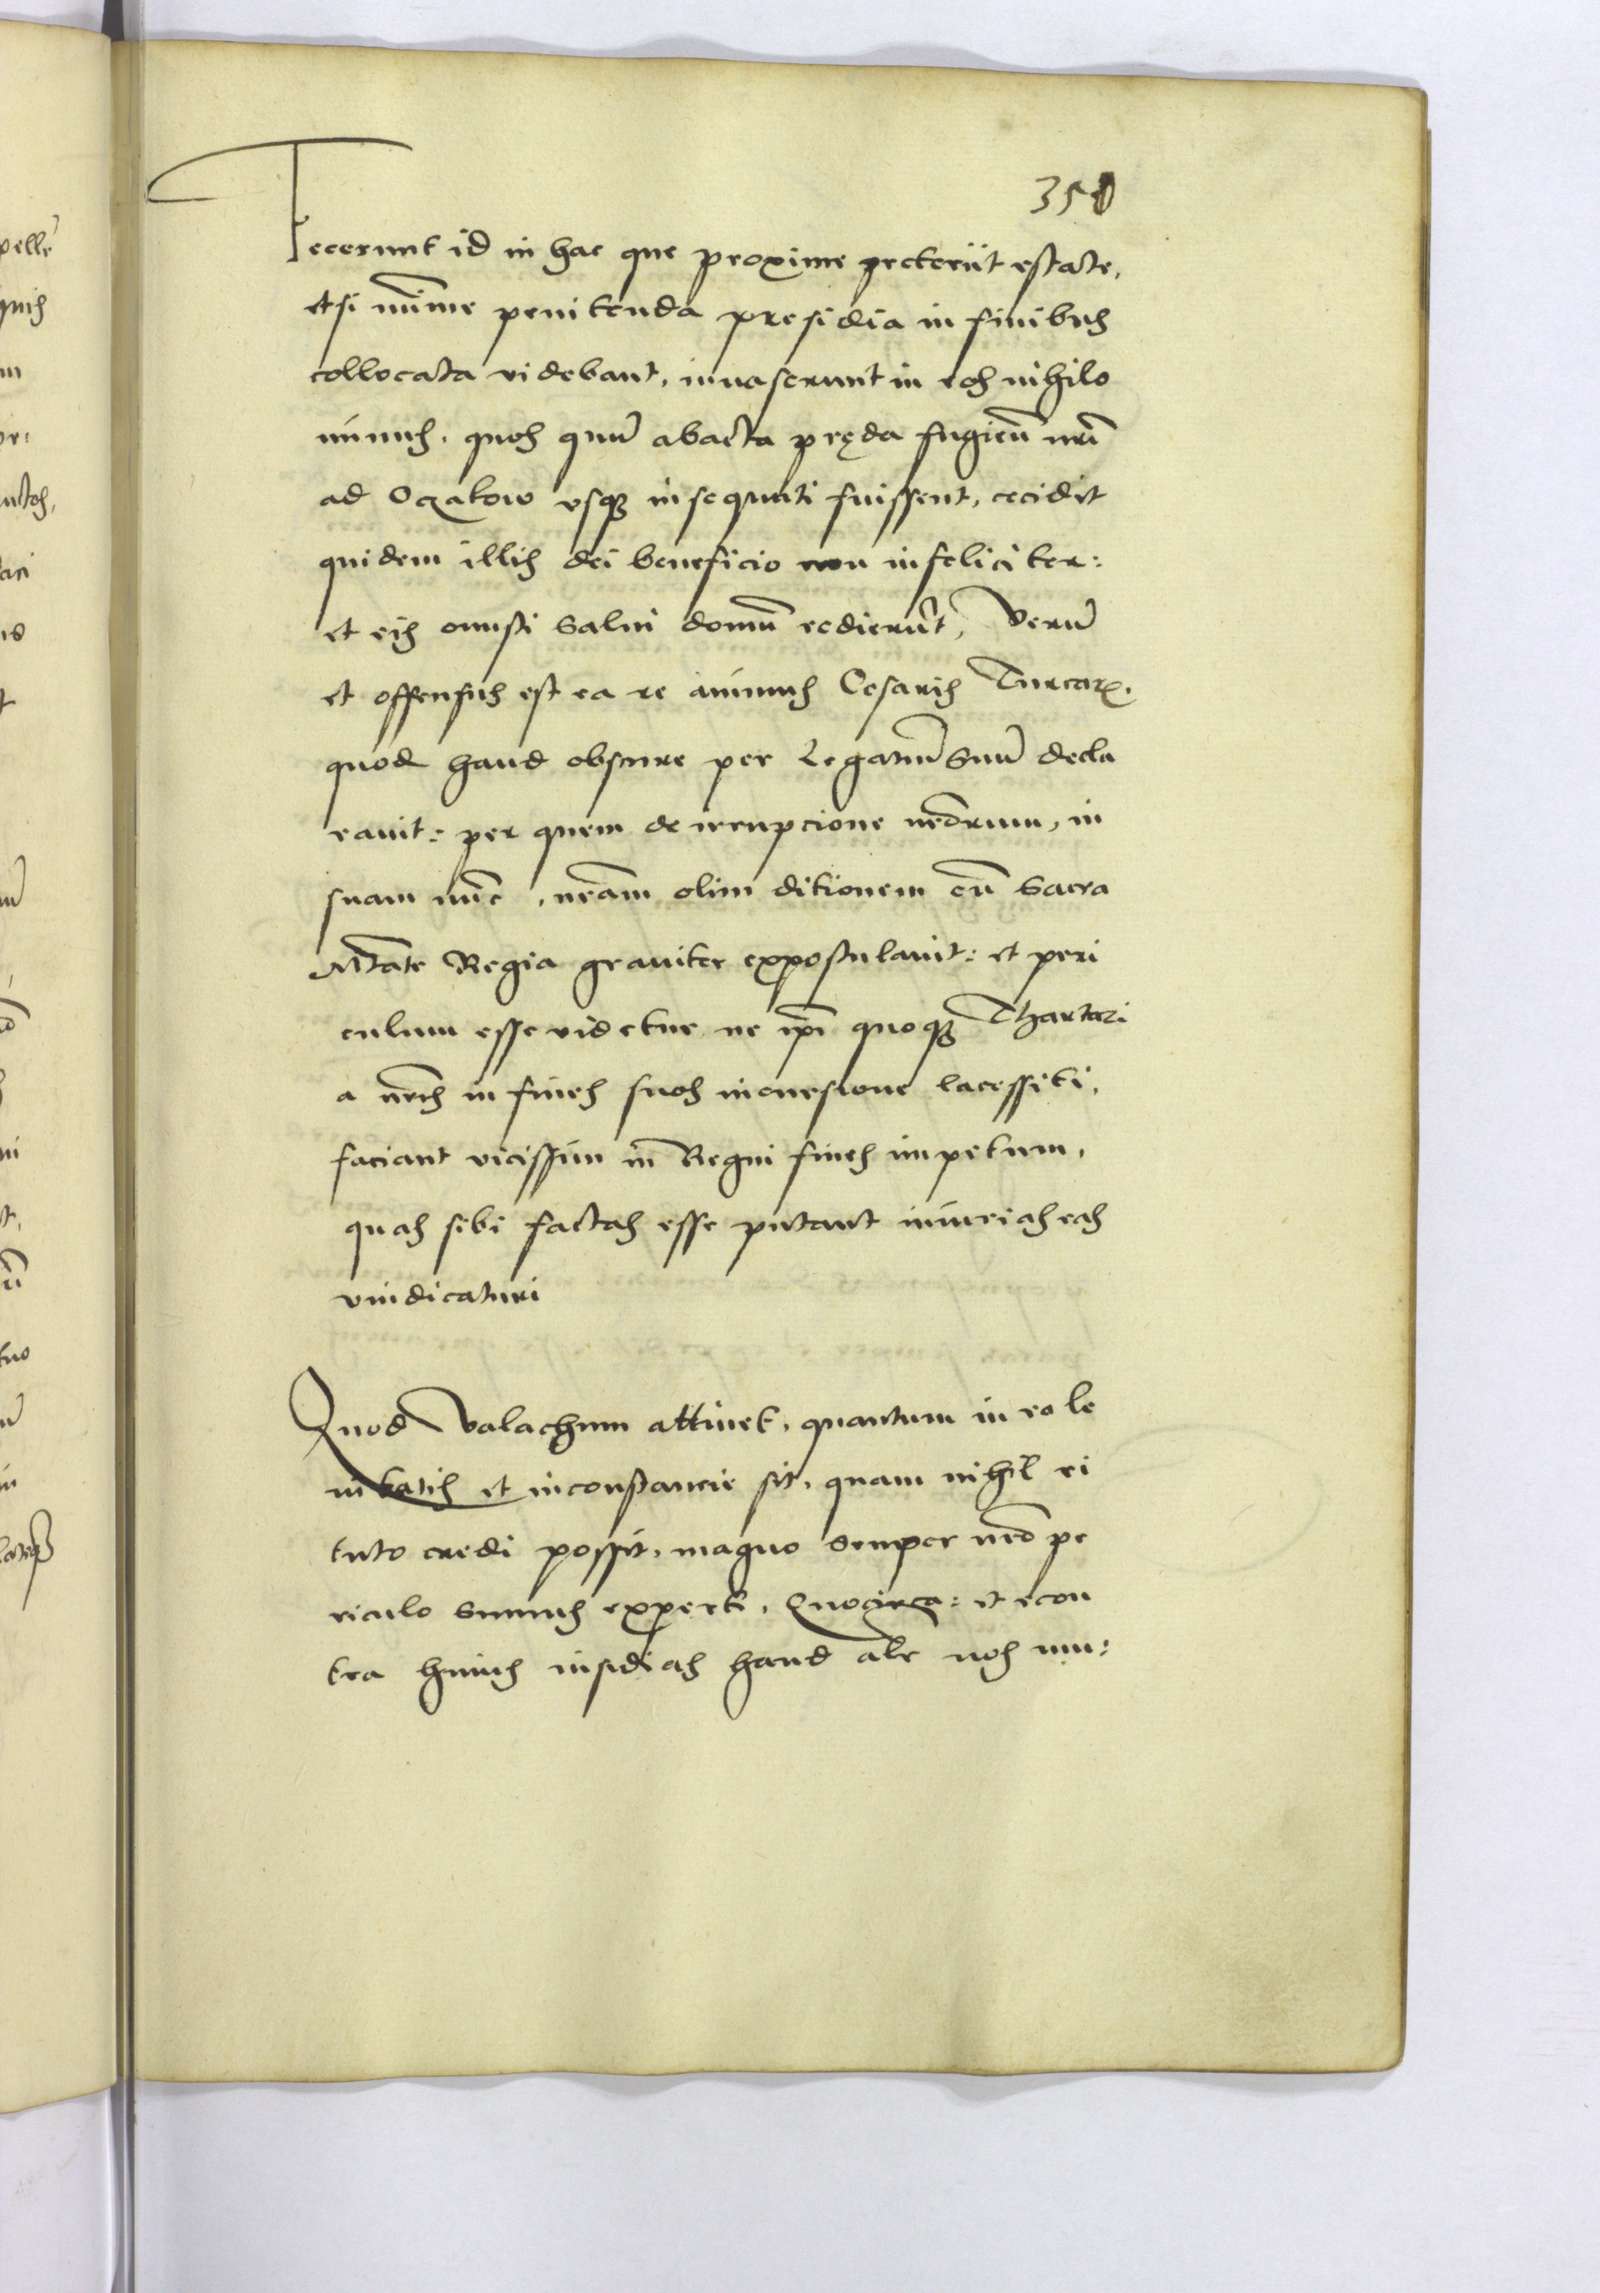 350
Fecerunt id in hac que proxime preteriit estate,
etsi minime penitenda presidia in finibus
collocata videbant, invaserunt in eos nihilo
minus, quos quum abacta pręda fugien̄ nr̄i
ad Oczakow vsq insequuti fuissent, cecidit
quidem illis dei beneficio non infeliciter:
et eis onusti salui domū redierūt, Verū
et offensus est ea re animus Cesaris Turcarꝫ,
quod haud obscure per Legatū suū decla
rauit: per quem de irrupcione nr̄orum, in
suam nūc, nr̄am olim ditionem cū Sacra
Mtāte Regia grauiter expostulauit: et peri
culum esse videtur ne ip̄i quoqꝫ Thartari
a nr̄is in fines suos incursione lacessiti,
faciant vicissim in Regni fines impetum,
quas sibi factas esse putant iniurias eas
vindicaturi
Quod Valachum attinet, quantum in eo le
nitatis et inconstancie sit, quam nihil ei
tuto credi possit, magno semper nr̄o pe
riculo sumus experti, Quocirca: et econ
tra huius insidias haud alr̄ nos mu:
pellē
quis